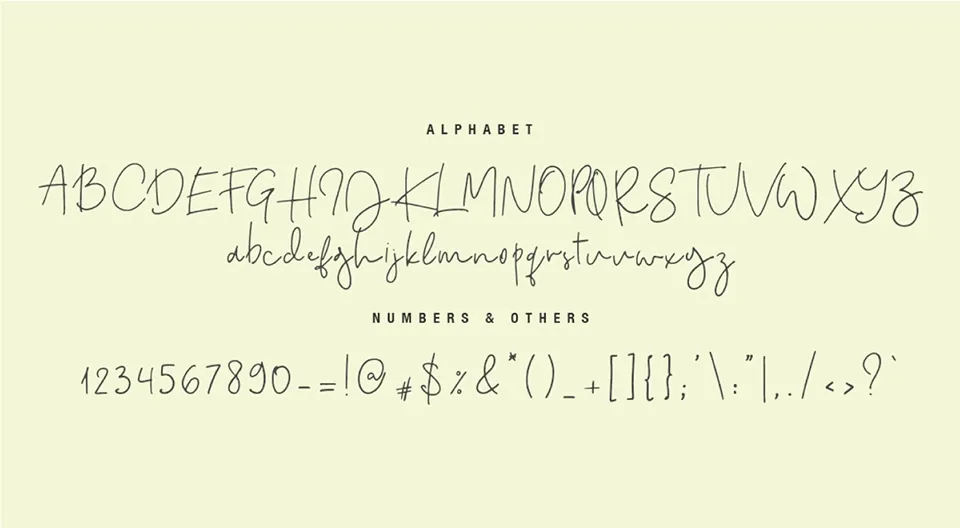 ALPHABET
ABCDEFGHIJKLMNOPQRSTUVWXYZ
abcdefghijklmnopqrstuvwxyz
NUMBERS & OTHERS
1234567890-=!@#$%&*()_+[]{};'\:"|,./<>?`